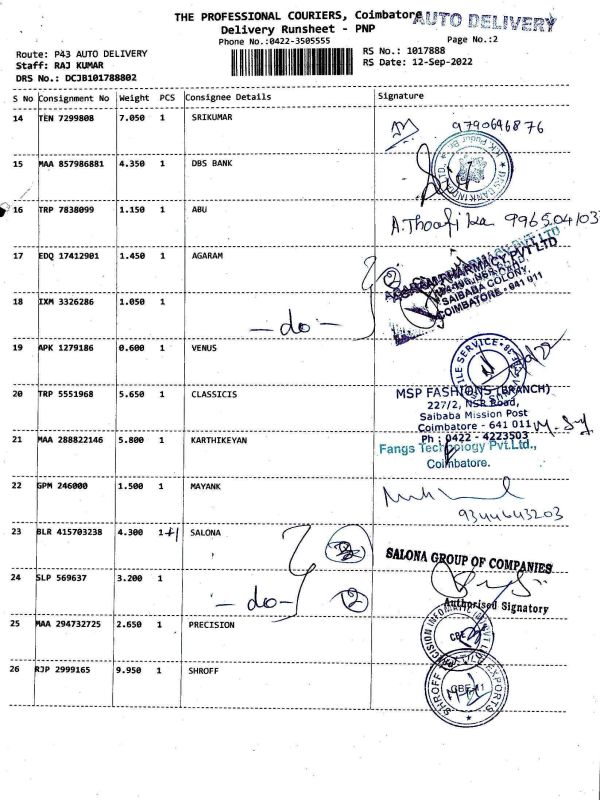 THE PROFESSIONAL COURIERS, Coimbatore
AUTO DELIVERY
Delivery Runsheet - PNP
Phone No.:0422-3505555
Page No.:2
Route: P43 AUTO DELIVERY
RS No.: 1017888
Staff: RAJ KUMAR
RS Date: 12-Sep-2022
DRS No.: DCJB101788802
S No Consignment No Weight PCS Consignee Details Signature
14 TEN 7299808 7.050 1 SRIKUMAR 9790646876
15 MAA 857986881 4.350 1 DBS BANK
16 TRP 7838099 1.150 1 ABU
17 EDQ 17412901 1.450 1 AGARAM 2
AGARAM PHARMACY PVT LTD
SAIBABA COLONY,
COIMBATORE - 641 011
18 IXM 3326286 1.050 1 - do -
19 APK 1279186 0.600 1 VENUS
20 TRP 5551968 5.650 1 CLASSICIS
MSP FASHIONS (BRANCH)
227/2, NSR Road,
Saibaba Mission Post
Coimbatore - 641 011
Ph : 0422 - 4223503
21 MAA 288822146 5.800 1 KARTHIKEYAN
Fangs Technology Pvt.Ltd.,
Coimbatore.
22 GPM 246000 1.500 1 MAYANK
9344643203
23 BLR 415703238 4.300 1+1 SALONA
SALONA GROUP OF COMPANIES
24 SLP 569637 3.200 1 - do - 2
Authorised Signatory
25 MAA 294732725 2.650 1 PRECISION
CBE
26 RJP 2999165 9.950 1 SHROFF
SHROFF TEXTILE EXPORTS
CBE-11